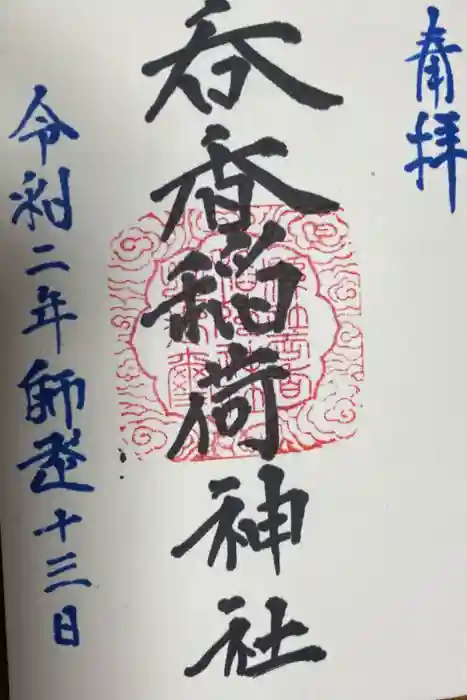 奉拝
呑香稲荷神社
令和二年師走十三日